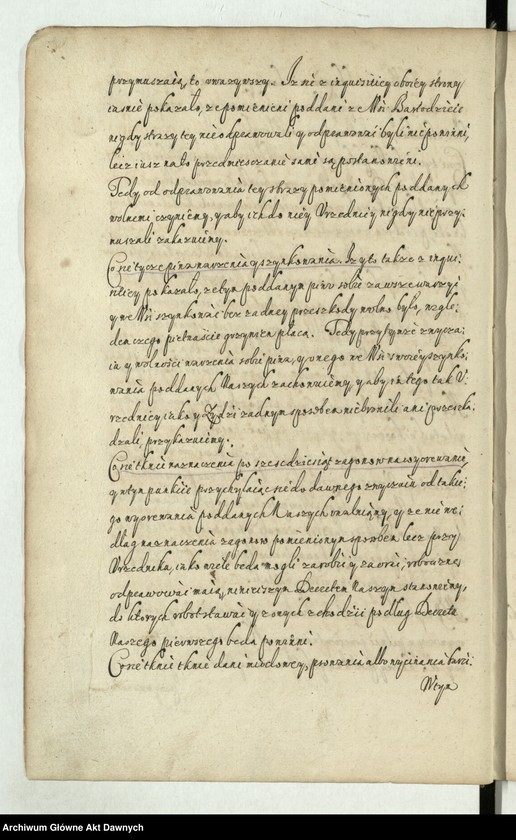 przymuszaią, to uważywszy. Iż się z inquisiticy oboiey strony
iaśnie pokazało, że pomienieni poddani ze Wsi
nigdy straży tey nie odprawowali y odprawować byli niepowinni,
lecz iusz na to przedmieszczanie sami są postanowieni.
Tedy od odprawowania tey straży pomienionych poddanych
wolnemi czynimy, y aby ich do niey Urzednicy nigdy nie przy:
muszali zakazuiemy.
Co się tycze piwa warzenia y szynkowania. Iż y to także z inqui:
siticy pokazało, że tym poddanym piwo sobie zawsze warzyć
y we Wsi szynkować bez żadney przeszkody wolno było, wzglę:
dem czego pietnaście grzywien płacą. Tedy przy tymże zwycza:
iu y wolności warzenia sobie piwa, y onego we Wsi swoiey szynko:
wania poddanych Naszych zachowuiemy, y aby im tego tak U:
rzednicy iako y Żydzi żadnym sposobem niebronili ani przeszka:
dzali, przykazuiemy.
Co się tknie naznaczenia po szesćdziesiąt zagonow na wyorywanie,
y w tym punkcie przychylaiąc się do dawnego zwyczaiu od takie:
go wyorywania poddanych Naszych uwalniamy, y że nie we:
dług naznaczenia zagonow pomienionym sposobem bez przy
Urzednika, iako wiele będą mogli zarobić y zaorać, robociznę
odprawować maią, ninieyszym Decretem Naszym stanowiemy,
do ktorych robot stawać y z onych zchodzić podług Decretu
Naszego pierwszego będą powinni.
Co się tknie tknie dani miodowey, albo
Wtym
Archiwum Główne Akt Dawnych